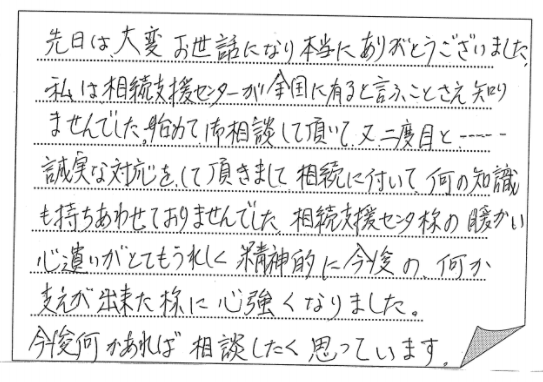 先日は、大変お世話になり本当にありがとうございました。
私は、相続支援センターが全国に有ると言ふことさえ知り
ませんでした。始めて、御相談して頂いて、又二度目と-----
誠実な対応をして頂きまして相続に付いて、何の知識
も持ちあわせておりませんでした。相続支援センタ様の暖かい
心遣いがとてもうれしく精神的に今後の、何か
支えが出来た様に心強くなりました。
今後何かあれば相談したく思っています。